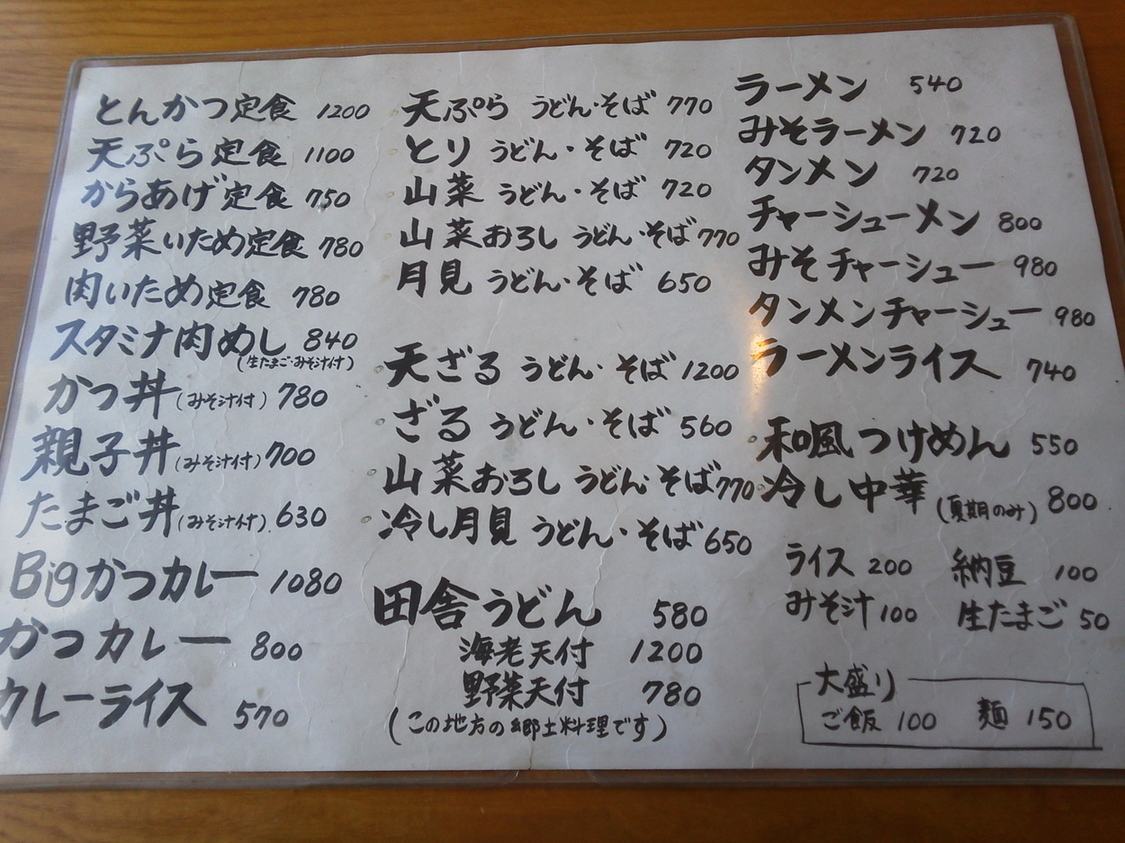 とんかつ定食 1200
天ぷら定食 1100
からあげ定食 750
野菜いため定食 780
肉いため定食 780
スタミナ肉めし 840
(生たまご・みそ汁付)
かつ丼(みそ汁付) 780
親子丼(みそ汁付) 700
たまご丼(みそ汁付) 630
Bigかつカレー 1080
かつカレー 800
カレーライス 570
天ぷら うどん・そば 770
とり うどん・そば 720
山菜 うどん・そば 720
山菜おろし うどん・そば 770
月見 うどん・そば 650
天ざる うどん・そば 1200
ざる うどん・そば 560
山菜おろし うどん・そば 770
冷し月見 うどん・そば 650
田舎うどん 580
海老天付 1200
野菜天付 780
(この地方の郷土料理です)
ラーメン 540
みそラーメン 720
タンメン 720
チャーシューメン 800
みそチャーシュー 980
タンメンチャーシュー 980
ラーメンライス 740
和風つけめん 550
冷し中華(夏期のみ) 800
ライス 200 納豆 100
みそ汁 100 生たまご 50
大盛り
ご飯 100 麺 150